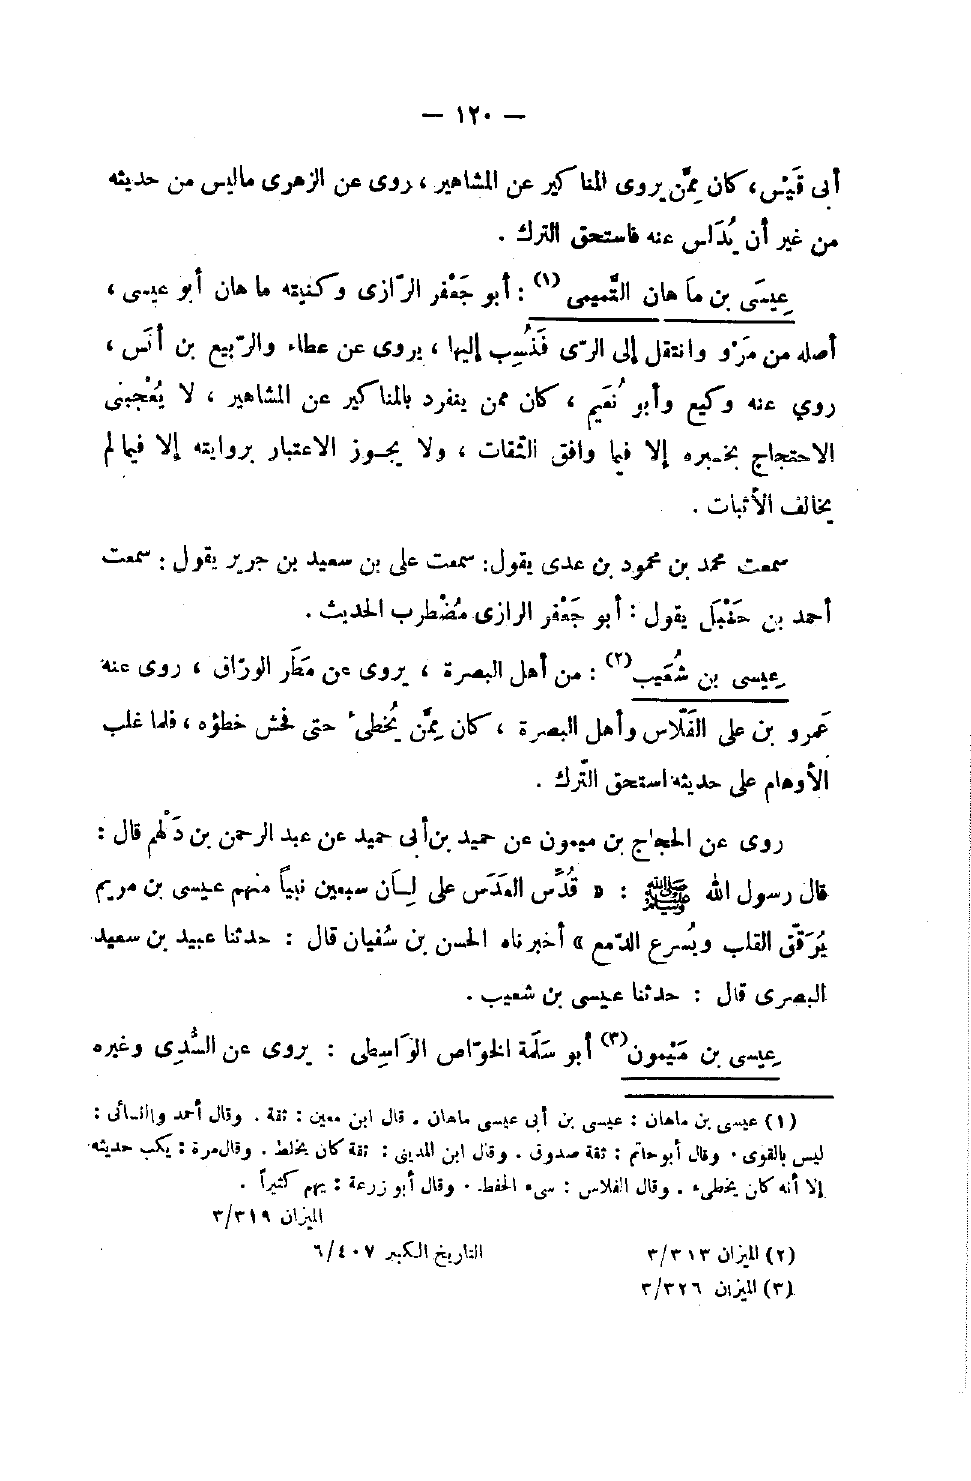 — ١٢٠ —
أبى قَيْس، كان مِمَّن يروى المناكير عن المشاهير ، روى عن الزهرى ماليس من حديثه
من غير أن يُدَلس عنه فاستحق الترك .
عِيسَى بن مَاهان التَّميمى (١) : أبو جَعْفر الرّازى وكنيته ماهان أبو عيسى ،
أصله من مَرْو وانتقل إلى الرّى فَنُسِب إليها ، يروى عن عطاء والرّبيع بن أنَس ،
روي عنه وكيع وأبو نُعَيم ، كان ممن ينفرد بالمناكير عن المشاهير ، لا يُعْجبنى
الاحتجاج بخبره إلا فيما وافق الثقات ، ولا يجوز الاعتبار بروايته إلا فيما لم
يخالف الأثبات .
سمعت محمد بن محمود بن عدى يقول: سمعت على بن سعيد بن جرير يقول : سمعت
أحمد بن حَنْبَل يقول : أبو جَعْفر الرازى مُضْطرب الحديث .
عِيسى بن شُعَيب (٢) : من أهل البصرة ، يروى عن مَطَر الورّاق ، روى عنه
عَمرو بن على الفَلّاس وأهل البصرة ، كان مِمَّن يُخطىء حتى فحش خطؤه ، فلما غلب
الأوهام على حديثه استحق التّرك .
روى عن الحجاج بن ميمون عن حميد بن أبى حميد عن عبد الرحمن بن دَلْهم قال :
قال رسول الله ﷺ : « قُدِّس العَدَس على لِسَان سبعين نبياً منهم عيسى بن مريم
يُرَقّق القلب ويُسرع الدّمع » أخبرناه الحسن بن سُفيان قال : حدثنا عبيد بن سعيد
البصرى قال : حدثنا عيسى بن شعيب .
عِيسى بن مَيْمون (٣) أبو سَلَمَة الخوّاص الوَاسِطى : يروى عن السُّدِى وغيره
(١) عيسى بن ماهان : عيسى بن أبى عيسى ماهان . قال ابن معين : ثقة . وقال أحمد والنسائى :
ليس بالقوى . وقال أبو حاتم : ثقة صدوق . وقال ابن المدينى : ثقة كان يخلط . وقال مرة : يكتب حديثه
إلا أنه كان يخطىء . وقال الفلاس : سىء الحفظ . وقال أبو زرعة : يهم كثيراً .
الميزان ٣/٣١٩
(٢) الميزان ٣/٣١٣ التاريخ الكبير ٦/٤٠٧
(٣) الميزان ٣/٣٢٦